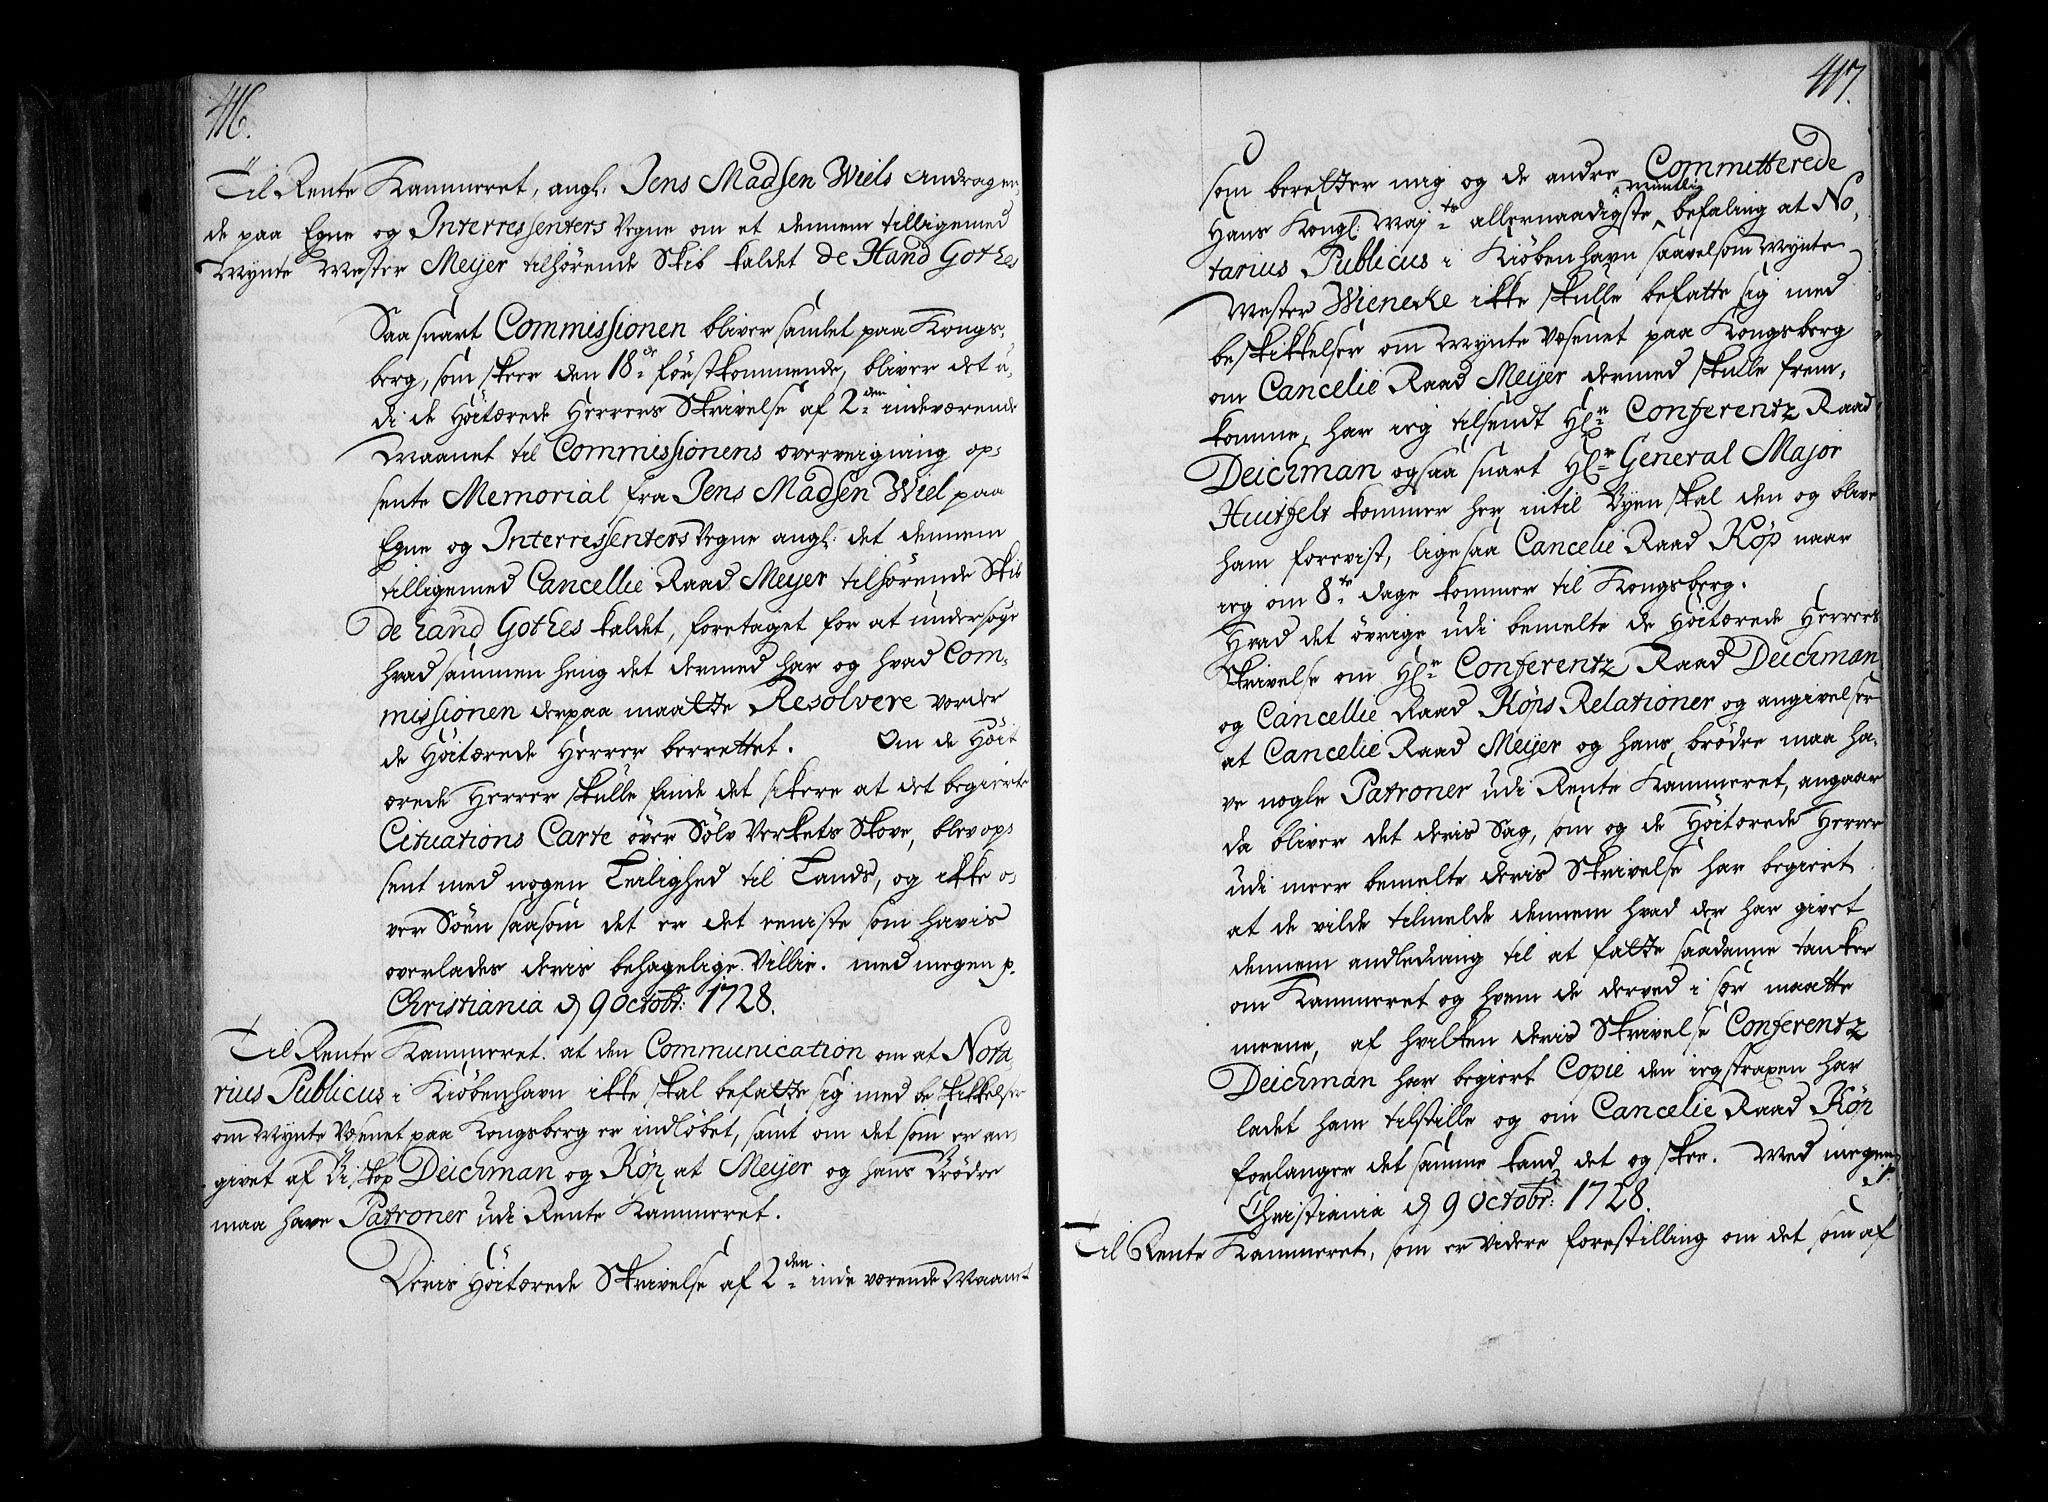 416.
Til Rente Kammeret, angl. Jens Madsen Wiels Andragen,
de paa Egne og Interressenters Vegne om et dennem tilligemed
Mynte Mester Meyer tilhörende Skib kaldet De Hand Gothes
Saa snart Commissionen bliver samlet paa Kongs,
berg, som skeer den 18de förstkommende, bliver det u,
di de Höitærede Herrers Skrivelse af 2den indeværende
Maanet til Commissionens overveigning op,
sente Memorial fra Jens Madsen Wiel paa
Egne og Interressenters Vegne angl: det dennem
tilligemed Cancellie Raad Meyer tilhörende Skib
De hand Gothes kaldet, foretaget for at undersöge
hvad sammen heng det dermed har og hvad Com,
missionen derpaa maatte Resolvere vorder
de Höitærede Herrer berettet. Om de Höit
ærede Herrer skulle finde det sikere at det begierte
Cituations Carte över Sölv Verkets Skove, blev op,
sent med nogen Leilighed til Lands, og ikke o,
ver Söen saasom det er det eeniste som havis
overlades deris behagelige Villie. med megen p.
Christiania d 9 Octobr: 1728.
Til Rente Kammeret. at den Communication om at Nota,
rius Publicus i Kiöbenhavn ikke skal befatte sig med beskikkelser
om Mynte Væsenet paa Kongsberg er indlöbet, samt om det som er an,
givet af Biskop Deichman og Röp at Meyer og hans Brödre
maa have Patroner udi Rente Kammeret.
Deris Höitærede Skrivelse af 2den inde værende Maanet
417.
som beretter mig og de andre Committerede
Hans Kongl: May:ts allernaadigste mundtlig befaling at No,
tarius Publicus i Kiöbenhavn saavelsom Mynte
Mester Wienecke ikke skulle befatte sig med
beskikkelser om Mynte Væsenet paa Kongsberg
om Cancelie Raad Meyer dermed skulle frem,
komme, har ieg tilsendt Hl:r Conferentz Raad
Deichman ogsaa snart Hl:r General Major
Huitfelt kommer her intil Byen skal den og blive
ham forevist, lige saa Cancelie Raad Röp naar
ieg om 8te dage kommer til Kongsberg.
Hvad det övrige udi bemelte de Höitærede Herrers
Skrivelse om Hl:r Conferentz Raad Deichman
og Cancellie Raad Röps Relationer og angivelser
at Cancelie Raad Meyer og hans brödre maa ha,
ve nogle Patroner udi Rente Kammeret, angaar
da bliver det deris Sag, som og de Höitærede Herrer
udi meer bemelte deris Skrivelse har begiert
at de vilde tilmelde dennem hvad der har givet
dennem andledning til at fatte saadanne tanker
om Kammeret og hvem de derved i sær maatte
meene, af hvilken deris Skrivelse Conferentz
Deichman har begiert Copie den ieg straxen har
ladet ham tilstille og om Cancelie Raad Röp
forlanger det samme kand det og skee. Med megen
p.
Christiania d 9 Octobr: 1728.
Til Rente Kammeret, som er videre forestilling om det som af